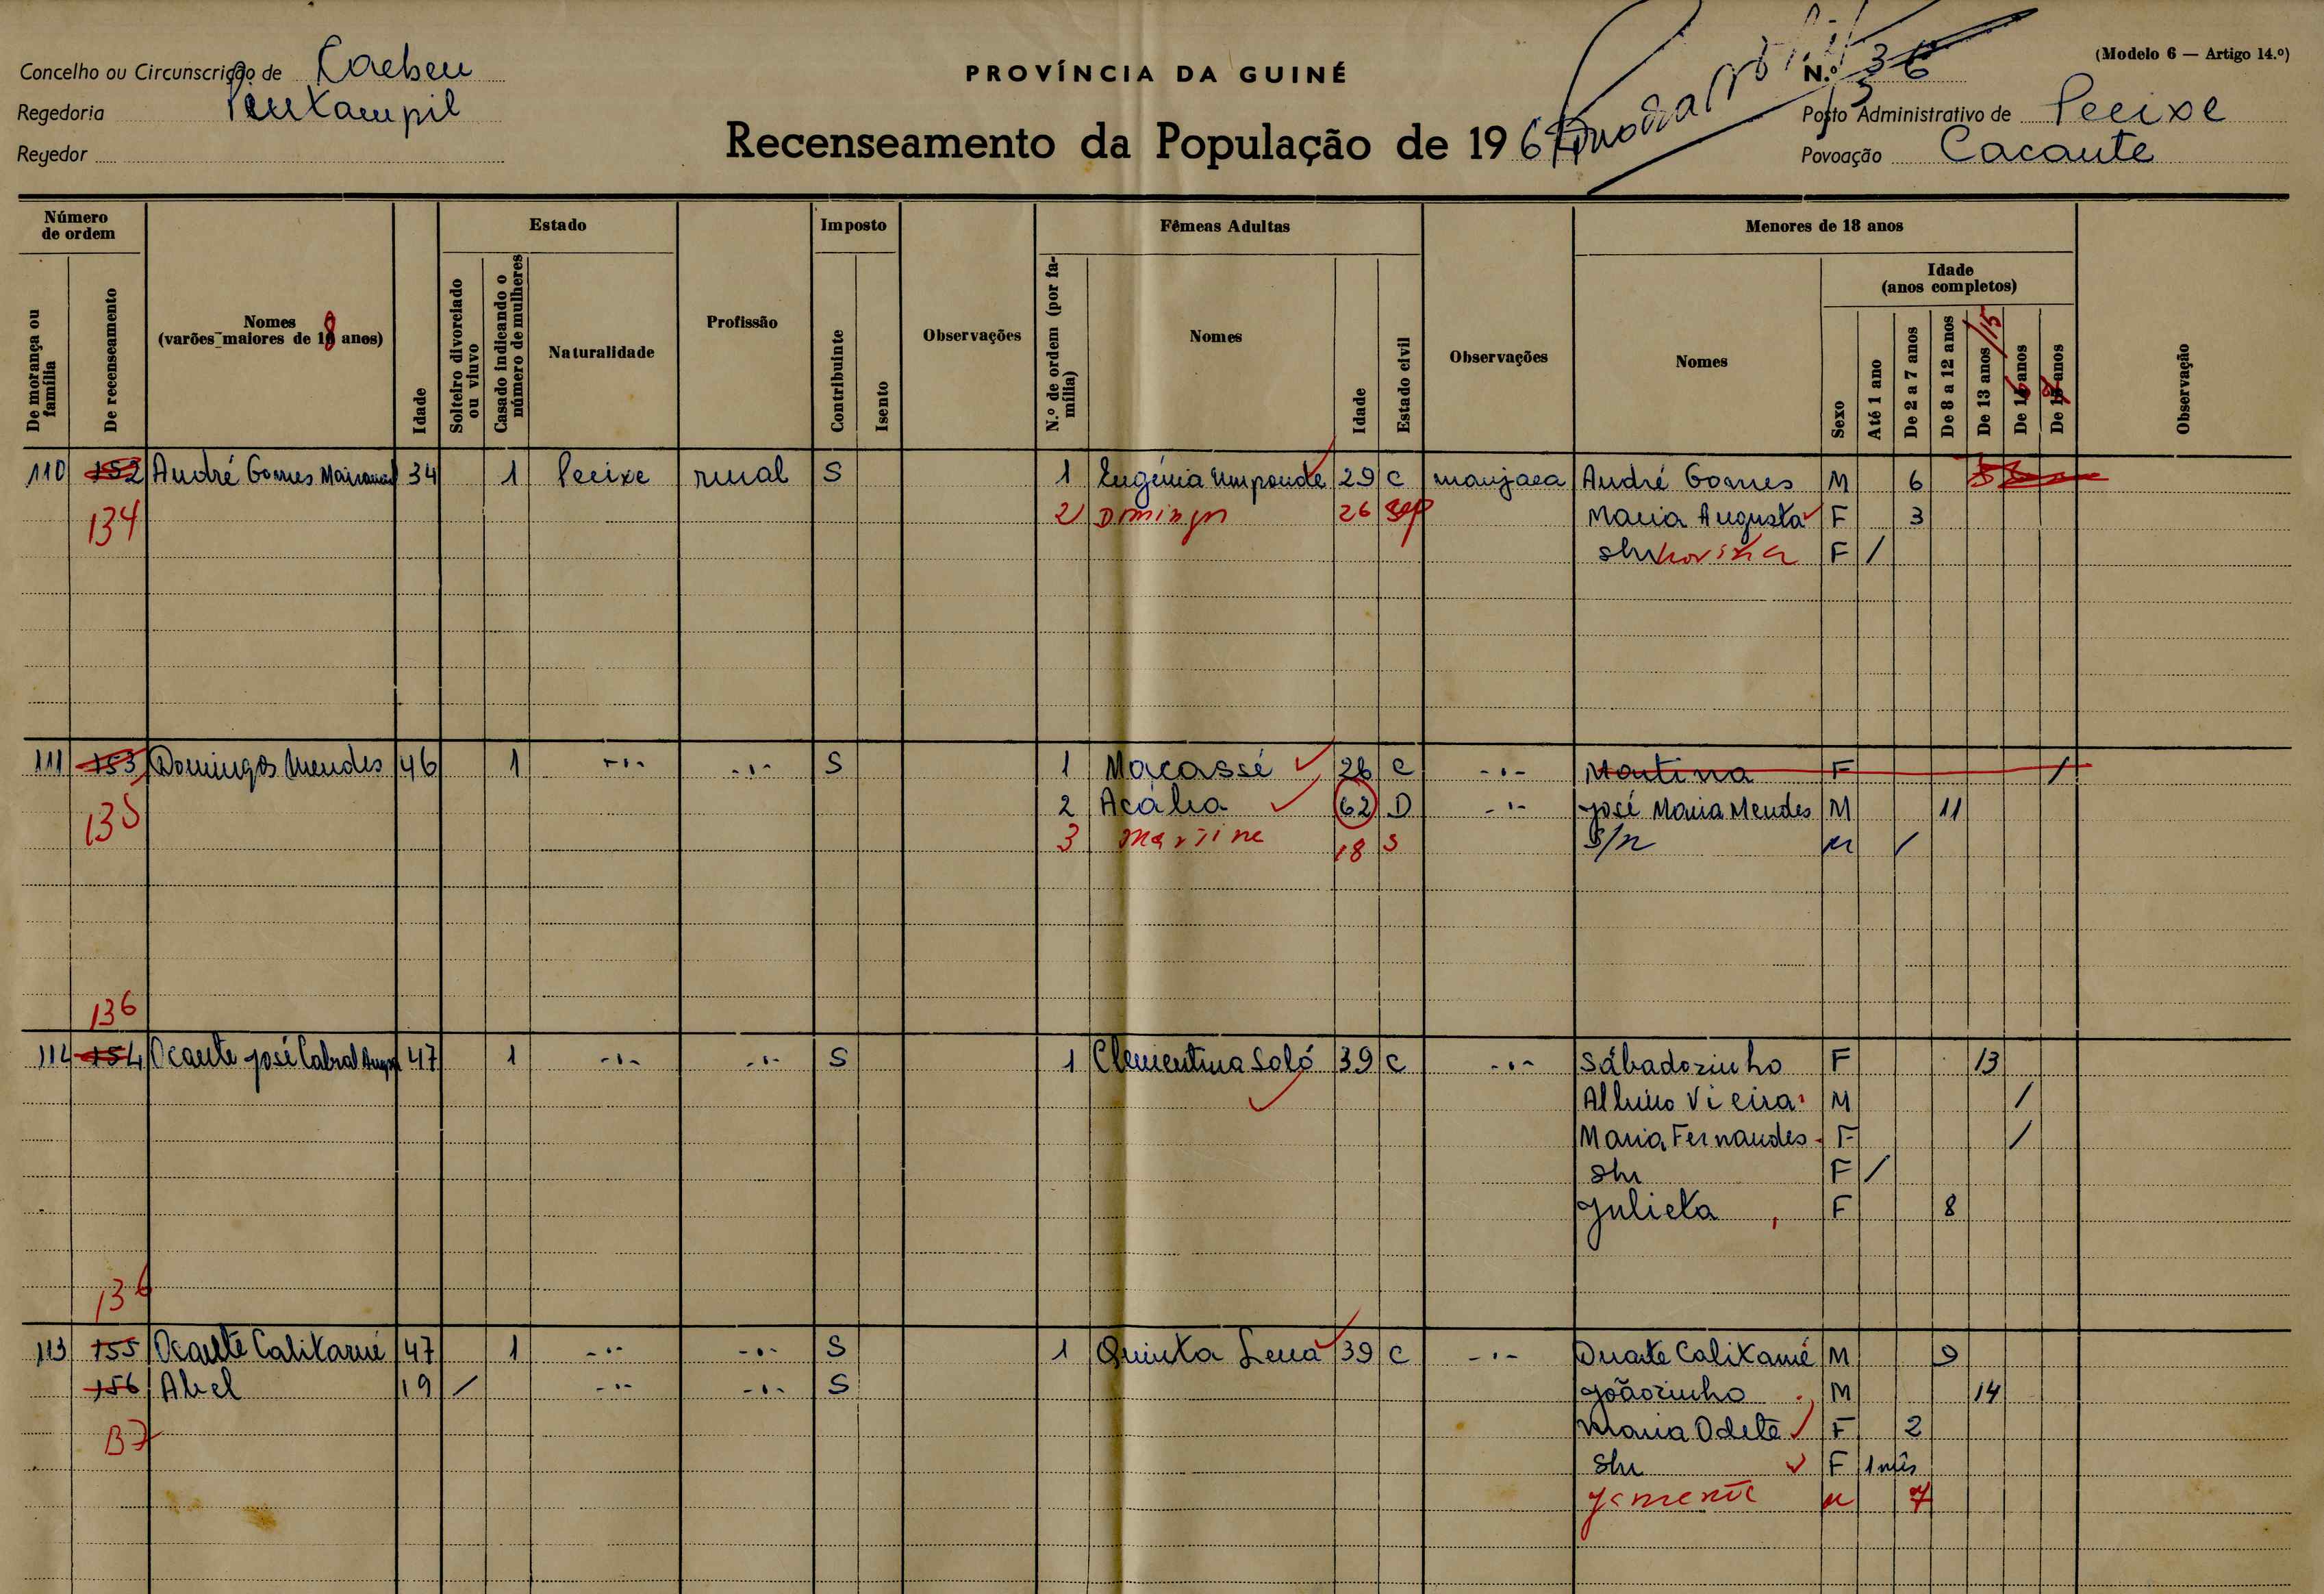 Concelho ou Circunscrição de Cacheu
PROVÍNCIA DA GUINÉ
N.º 36
(Modelo 6 — Artigo 14.º)
Regedoria
Posto Administrativo de Pecixe
Regedor
Recenseamento da População de 196
Povoação Cacante
Número de ordem
De morança ou família
De recenseamento
Nomes (varões maiores de 18 anos)
Idade
Estado
Solteiro divorciado ou viuvo
Casado indicando o número de mulheres
Naturalidade
Profissão
Imposto
Contribuinte
Isento
Observações
Fêmeas Adultas
N.º de ordem (por família)
Nomes
Idade
Estado civil
Observações
Menores de 18 anos
Nomes
Idade (anos completos)
Sexo
Até 1 ano
De 2 a 7 anos
De 8 a 12 anos
De 13 anos /15
De 16 anos
De anos
Observação
110 152 André Gomes 34 1 Pecixe rural S 1 Eugénia Umpande 29 C manjaca André Gomes M 6
134 2 Domingas 26 Maria Augusta F 3
F /
111 153 Domingos Mendes 46 1 -"- -"- S 1 Macassé 26 C -"- Martina F /
135 2 62 D -"- José Maria Mendes M 11
3 18 S S/n M /
136
154 Ocante José Cabral 47 1 -"- -"- S 1 Clementina Saló 39 C -"- Sábadozinho F 13
Albino Vieira M /
Maria Fernandes F /
S/n F /
Julieta F 8
136
113 155 Ocante Calitamé 47 1 -"- -"- S 1 Quinta 39 C -"- Duarte Calitamé M 9
156 Abel 19 / -"- -"- S Joãozinho M 14
137 Maria Odete F 2
S/n F 1 mês
M 7